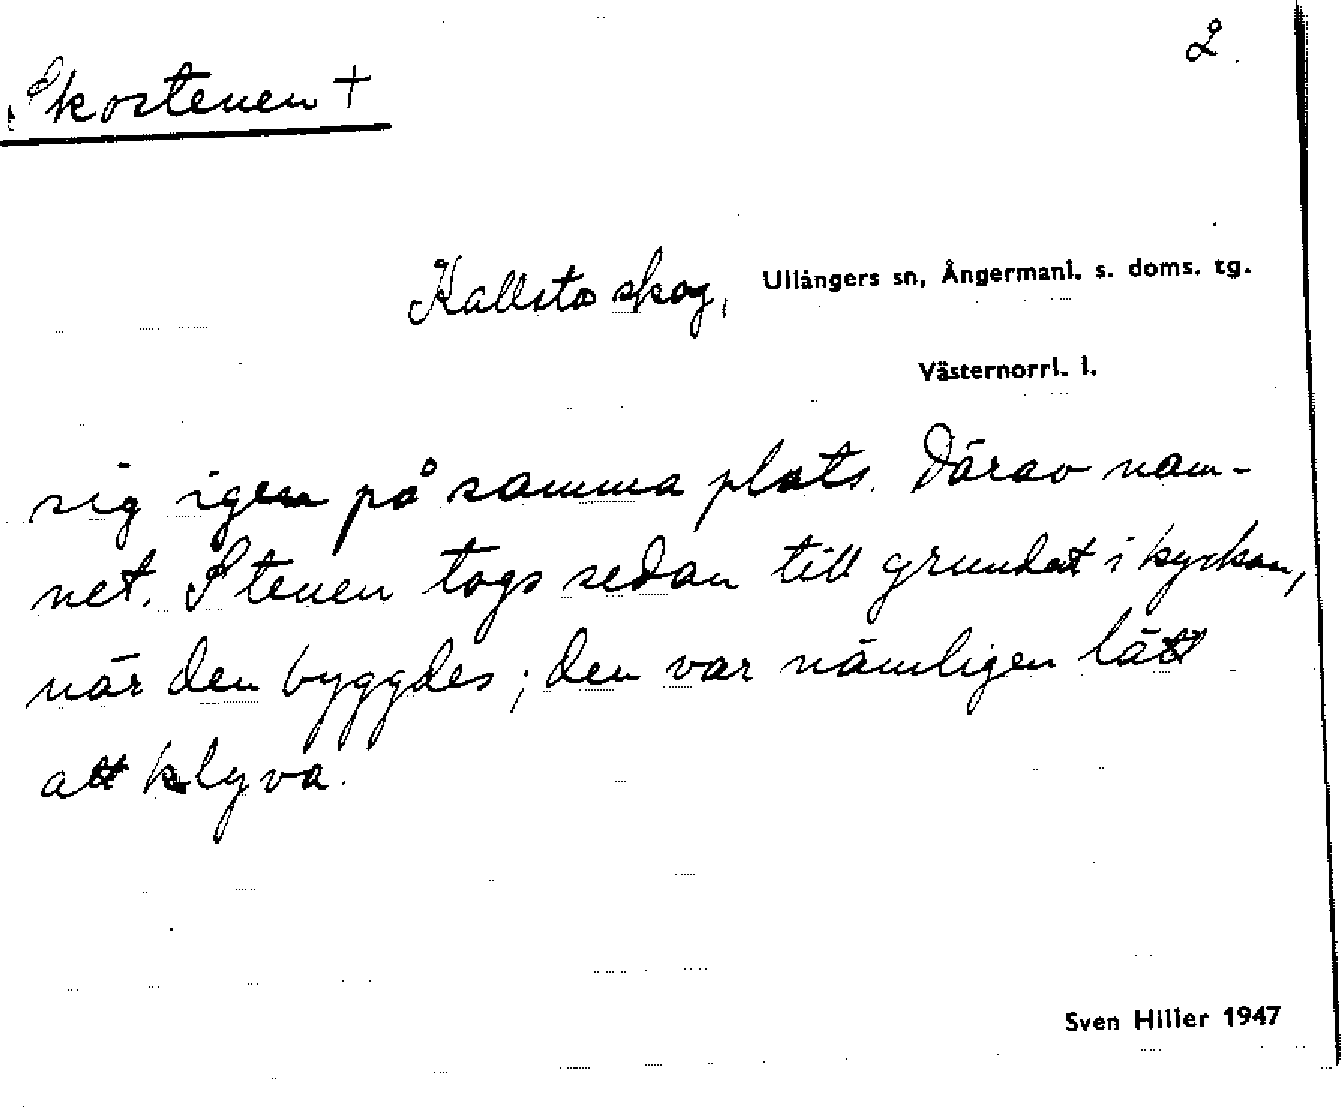 2.
Skostenen +
Kallsta skog, Ullångers sn, Ångermanl. s. doms. tg.
Västernorrl. l.
sig igen på samma plats. Därav nam-
net. Stenen togs sedan till grundet i kyrkan,
när den byggdes; den var nämligen lätt
att klyva.
Sven Hiller 1947